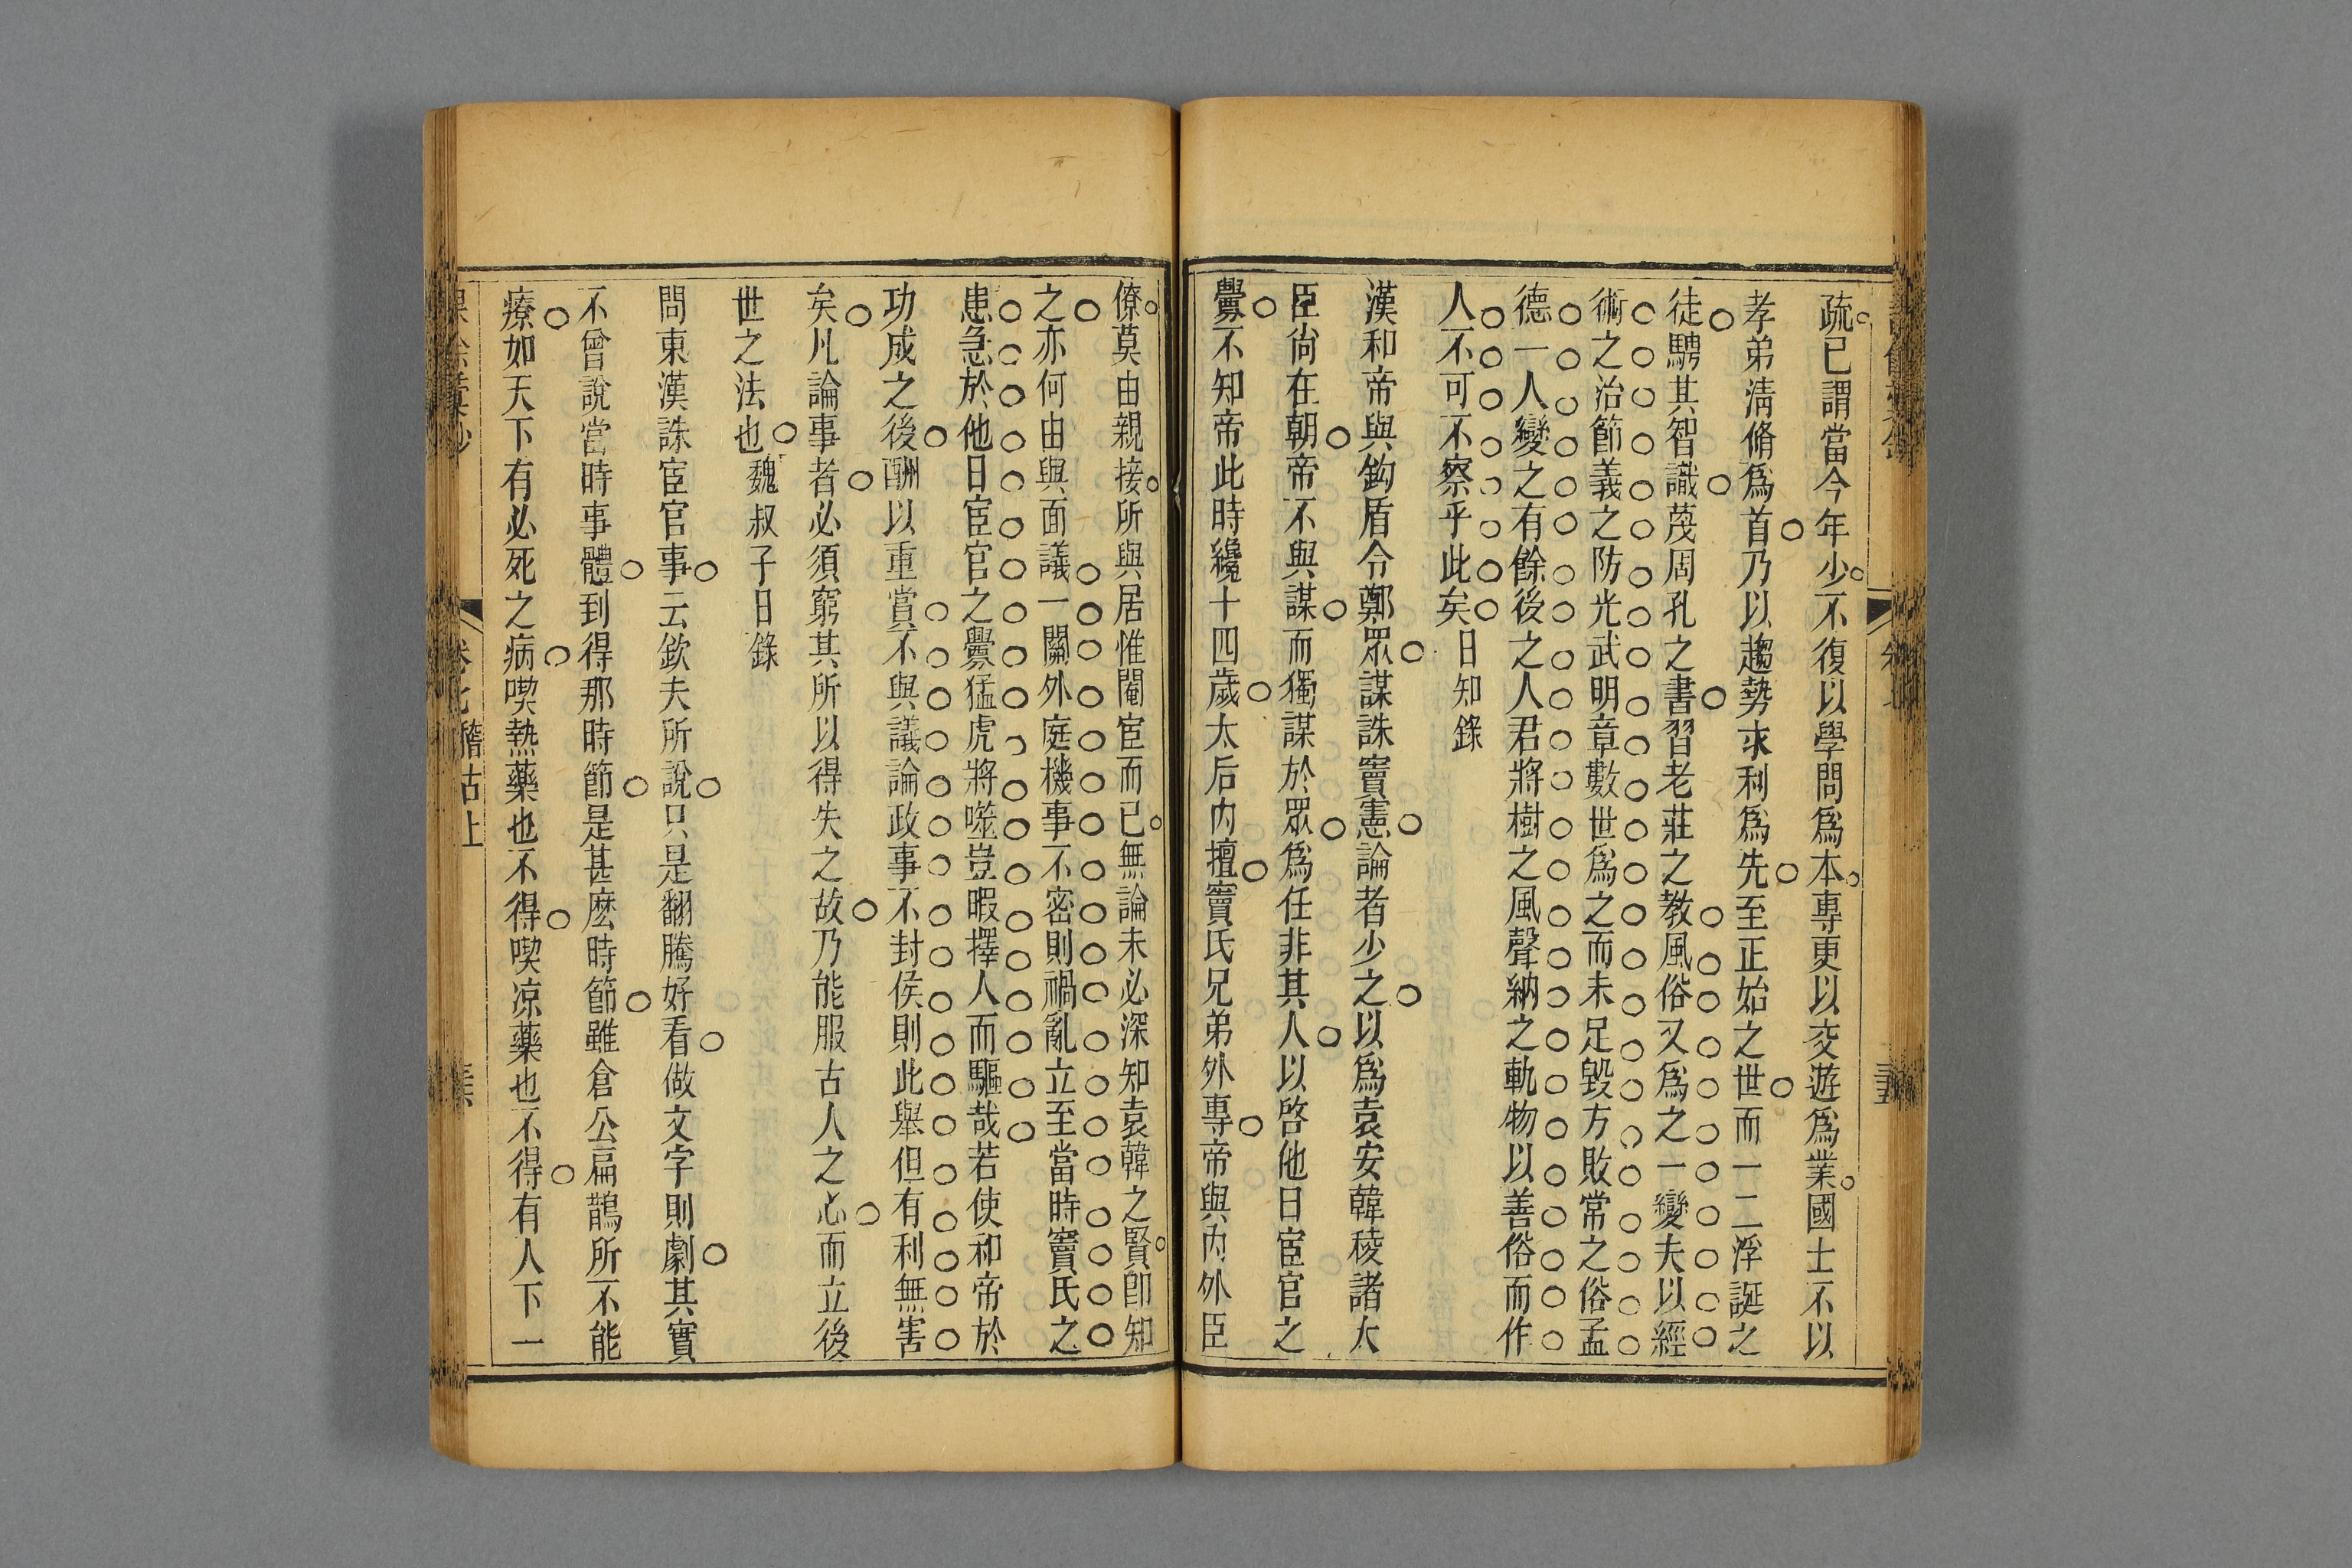 疏已謂當今年少不復以學問爲本專更以交遊爲業國士不以
孝弟淸脩爲首乃以趨勢求利爲先至正始之世而一二浮誕之
徒騁其智識蔑周孔之書習老莊之教風俗又爲之一變夫以經
術之治節義之防光武明章數世爲之而未足毀方敗常之俗孟
德一人變之有餘後之人君將樹之風聲納之軌物以善俗而作
人不可不察乎此矣日知錄
漢和帝與鈎盾令鄭眾謀誅竇憲論者少之以爲袁安韓稜諸大
臣尙在朝帝不與謀而獨謀於眾爲任非其人以啓他日宦官之
釁不知帝此時纔十四歲太后内擅竇氏兄弟外專帝與内外臣
僚莫由親接所與居惟閹宦而已無論未必深知袁韓之賢卽知
之亦何由與面議一關外庭機事不密則禍亂立至當時竇氏之
患急於他日宦官之釁猛虎將噬豈暇擇人而驅哉若使和帝於
功成之後酬以重賞不與議論政事不封侯則此舉但有利無害
矣凡論事者必須窮其所以得失之故乃能服古人之心而立後
世之法也魏叔子日錄
問東漢誅宦官事云欽夫所說只是翻騰好看做文字則劇其實
不曾說當時事體到得那時節是甚麽時節雖倉公扁鵲所不能
療如天下有必死之病喫熱藥也不得喫凉藥也不得有人下一
卷七 稽古上